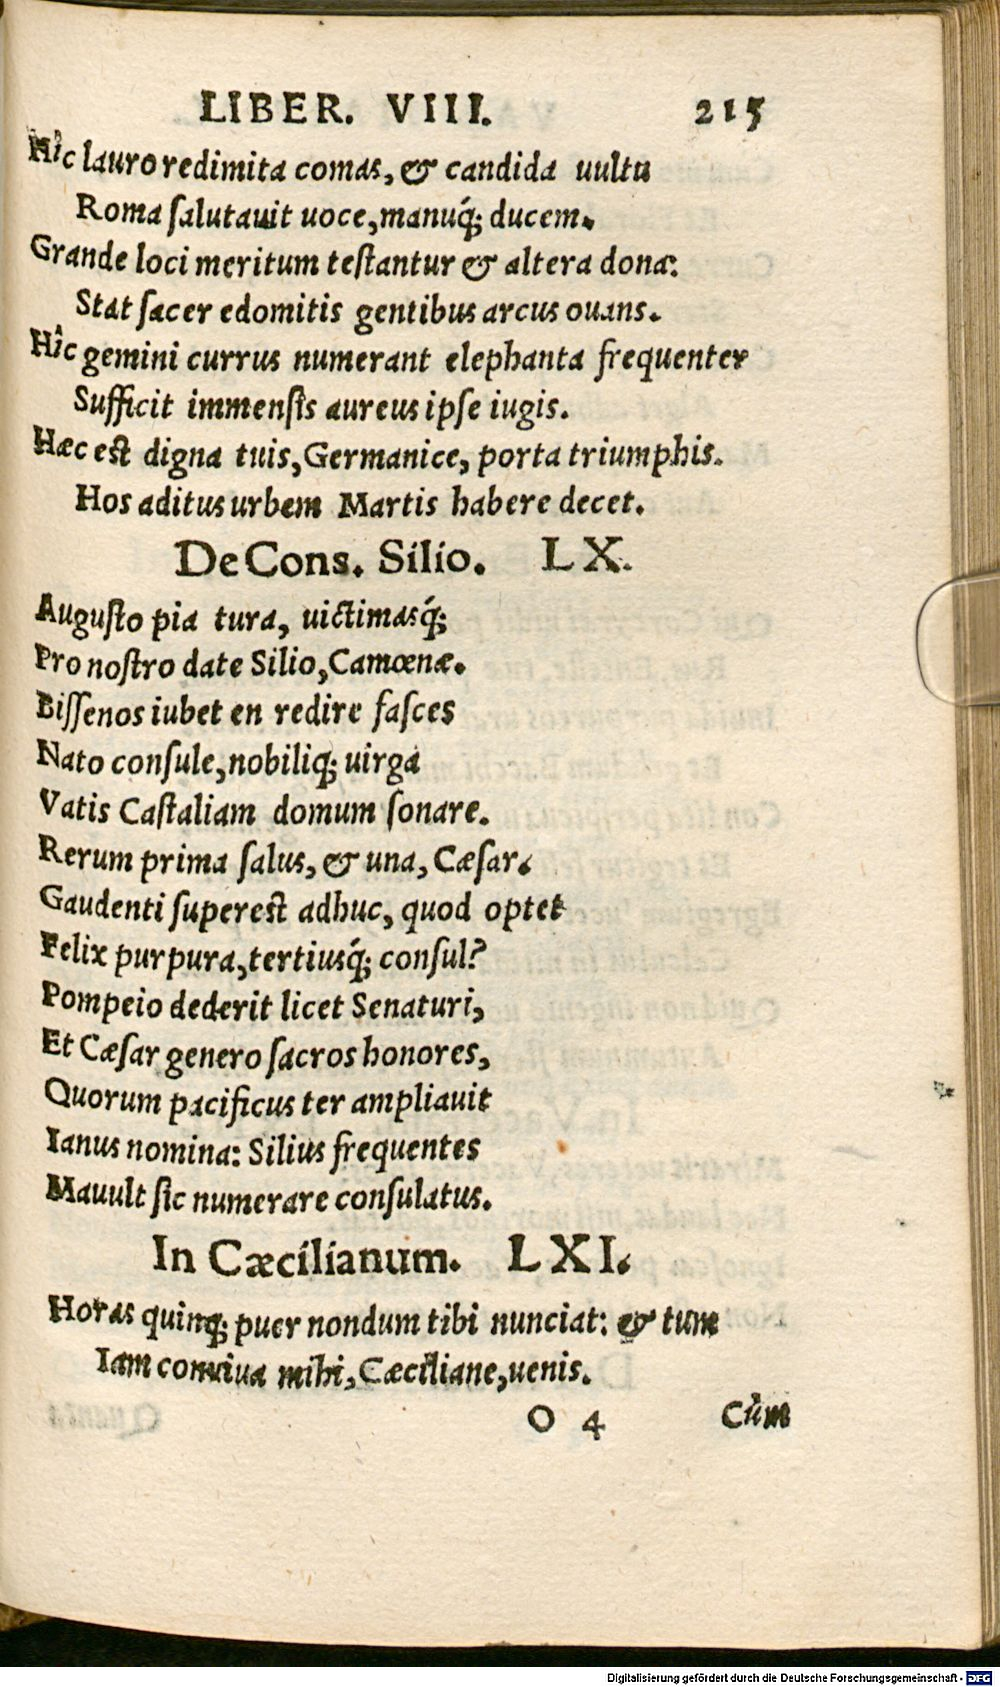 LIBER. VIII. 215
Hîc lauro redimita comas, & candida uultu
Roma salutauit uoce, manuq́; ducem.
Grande loci meritum testantur & altera donæ:
Stat sacer edomitis gentibus arcus ouans.
Hîc gemini currus numerant elephanta frequenter
Sufficit immensis aureus ipse iugis.
Hæc est digna tuis, Germanice, porta triumphis.
Hos aditus urbem Martis habere decet.
De Cons. Silio. LX.
Augusto pia tura, uictimasq́;
Pro nostro date Silio, Camœnæ.
Bissenos iubet en redire fasces
Nato consule, nobiliq; uirga
Vatis Castaliam domum sonare.
Rerum prima salus, & una, Cæsar.
Gaudenti superest adhuc, quod optet
Felix purpura, tertiusq́; consul?
Pompeio dederit licet Senaturi,
Et Cæsar genero sacros honores,
Quorum pacificus ter ampliauit
Ianus nomina: Silius frequentes
Mauult sic numerare consulatus.
In Cæcilianum. LXI.
Horas quinq; puer nondum tibi nunciat: & tum
Iam conuiua mihi, Cæciliane, uenis.
O 4 Cùm
Digitalisierung gefördert durch die Deutsche Forschungsgemeinschaft - DFG